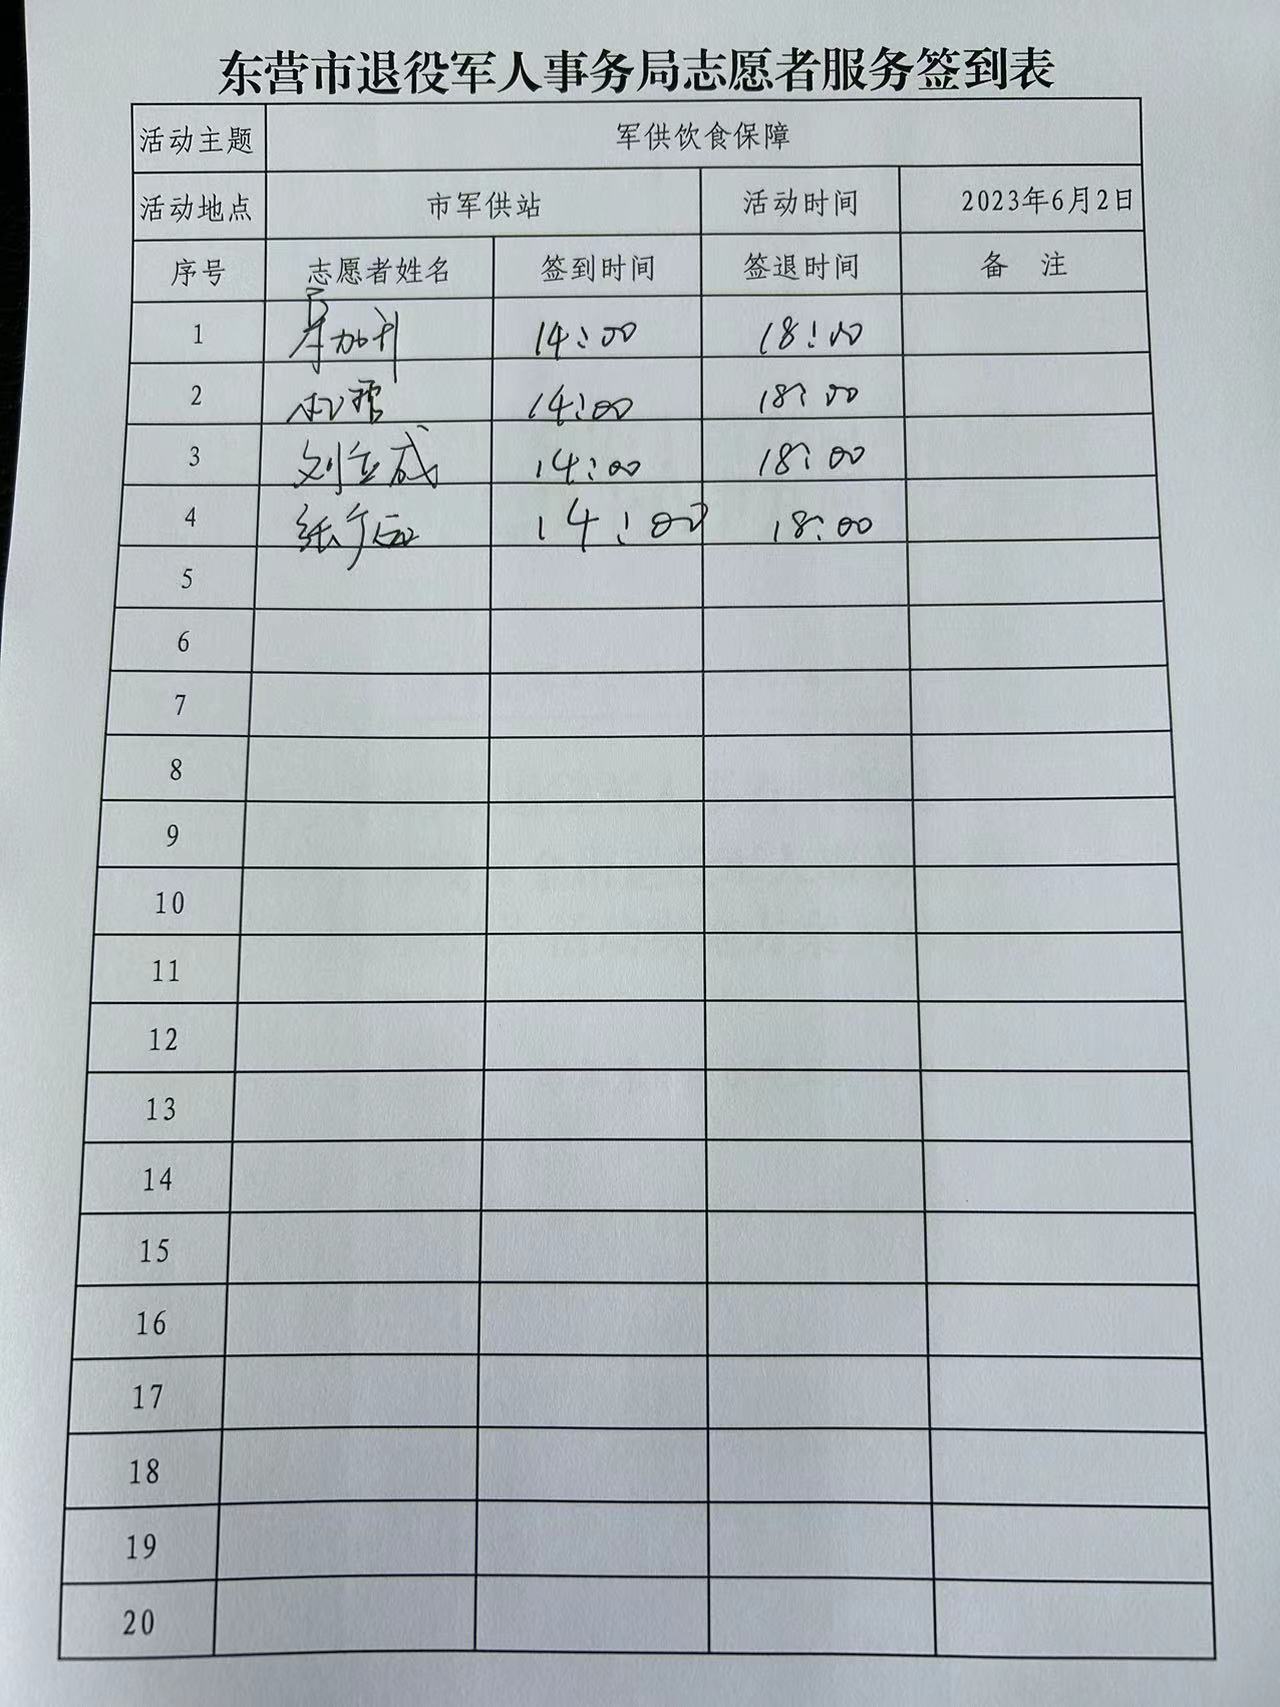 东营市退役军人事务局志愿者服务签到表
活动主题 军供饮食保障
活动地点 市军供站 活动时间 2023年6月2日
序号 志愿者姓名 签到时间 签退时间 备 注
1 14:00 18:00
2 14:00 18:00
3 刘立成 14:00 18:00
4 14:00 18:00
5
6
7
8
9
10
11
12
13
14
15
16
17
18
19
20